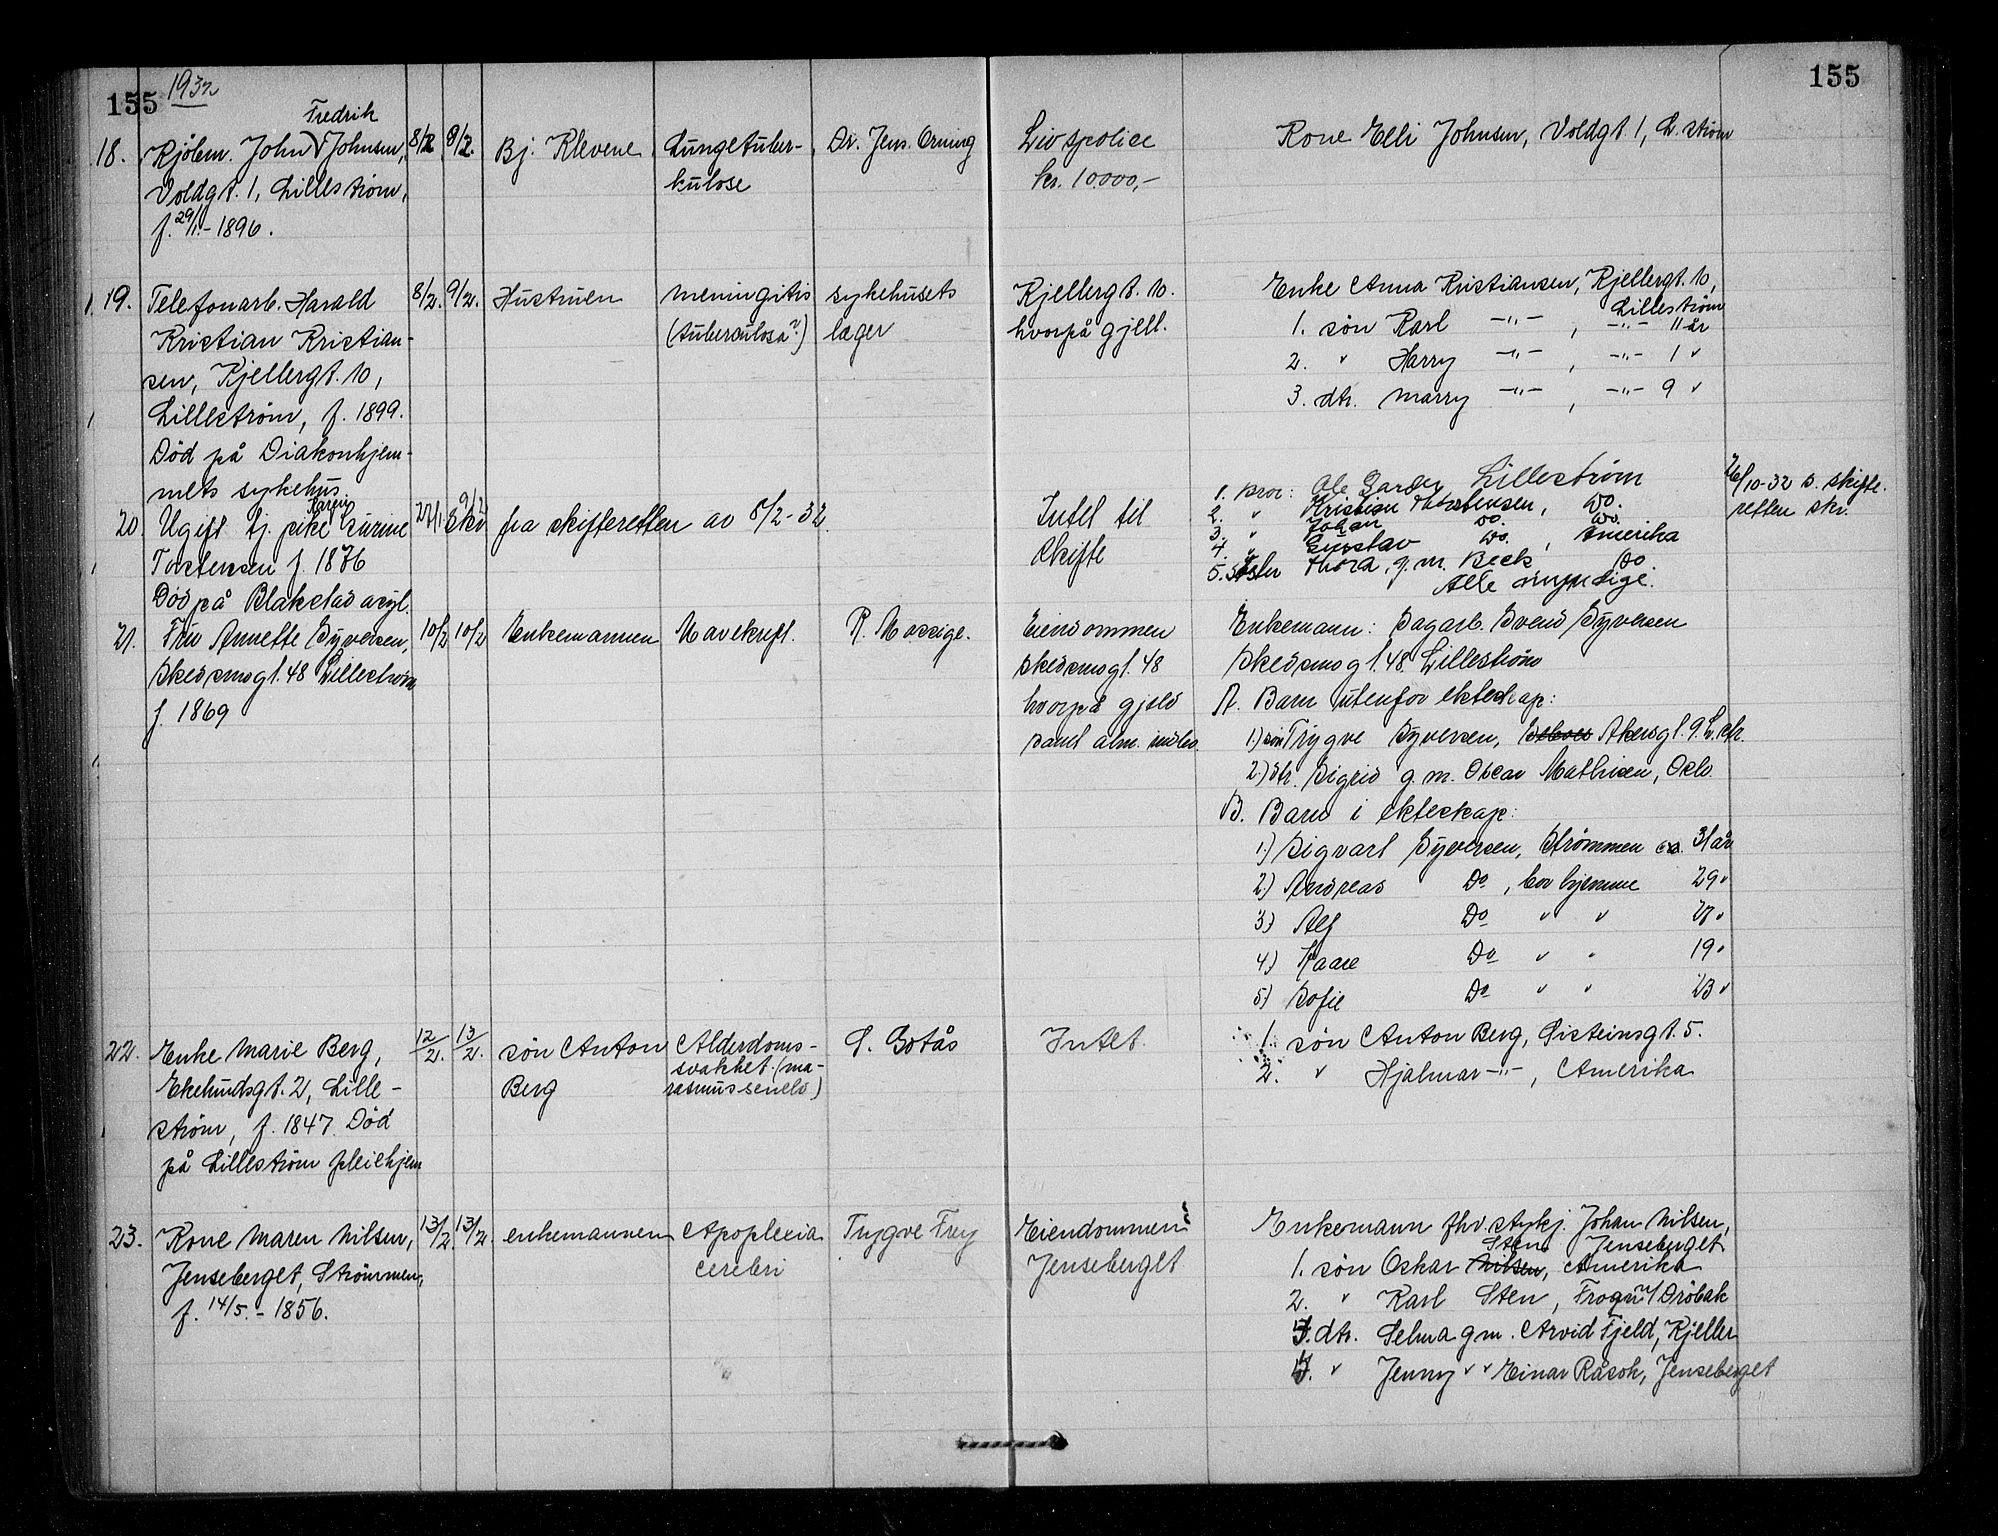 155 1932
155
Fredrik
18. Kjølem. John Johnsen, 8/2 9/2. Bj. Klevene Lungetuber- Dr. Jens Orning Livspolice Kone Elli Johnsen, Voldgt. 1, L.strøm
Voldgt. 1, Lillestrøm, kulose kr. 10.000,-
f. 29/1.-1896.
19. Telefonarb. Harald 8/2. 9/2. Hustruen meningitis sykehusets Kjellergt. 10. Enke Anna Kristiansen, Kjellergt. 10,
Lillestrøm
Kristian Kristian- (tuberculosa?) læger hvorpå gjeld. 1. søn Karl -"- , -"- 11 år
sen, Kjellergt. 10, 2. " Harry -"- , -"- 1 "
Lillestrøm, f. 1899. 3. dtr. Marry -"- , -"- 9 "
Død på Diakonhjem-
mets sykehus
20. Ugift tj. pike Karine 22/1 9/2 fra skifteretten av 8/2-32. Intet til 1. bror: Ole Garder Lillestrøm 26/10-32 s. skifte-
Torstensen f. 1876 Skifte 2. " Kristian Thorstensen, do. retten skr.
3. " Johan do. do.
4. " Gustav do. , Amerika
5. Søster Thora, g. m. Beck do.
Død på Blakstad asyl. Alle myndige.
21. Fru Annette Syversen, 10/2 10/2 Enkemannen Mavekreft. R. Mossige. Eiendommen Enkemann: Sagarb. Svend Syversen
Skedsmogt. 48 Lillestrøm Skedsmogt. 48 Skedsmogt. 48 Lillestrøm
f. 1869 hvorpå gjeld A. Barn utenfor ekteskap:
samt alm. innbo. 1.) søn Trygve Syversen, Akersgt. 9. L.str.
2.) dtr. Sigrid g. m. Oscar Mathisen, Oslo.
B. Barn i ekteskap:
1.) Sigvart Syversen, Strømmen ca. 31 år
2.) Andreas Do , bor hjemme 29 "
3.) Alf Do " " 27 "
4.) Kaare Do " " 19 "
5.) Sofie Do " " 23 "
22. Enke Marie Berg, 12/2. 13/2. søn Anton Alderdoms- S. Gotås Intet. 1. søn Anton Berg, Gisteinsgt. 5.
Ekelundsgt. 2, Lille- Berg svakhet. (ma- 2. " Hjalmar -"- , Amerika
strøm, f. 1847. Død rasmus senelis)
på Lillestrøm pleiehjem
23. Kone Maren Nilsen, 13/2. 13/2. enkemannen Apoplexia Trygve Frey Eiendommen Enkemann fhv. stykj. Johan Nilsen,
Sten Jenseberget
Jenseberget, Strømmen, cerebri Jenseberget 1. søn Oskar Nilsen, Amerika
f. 14/5.-1856. 2. " Karl Sten, Frogn/ Drøbak
3. dtr. Selma g m. Arvid Fjeld, Kjeller
4. " Jenny " " Einar Råsok, Jenseberget